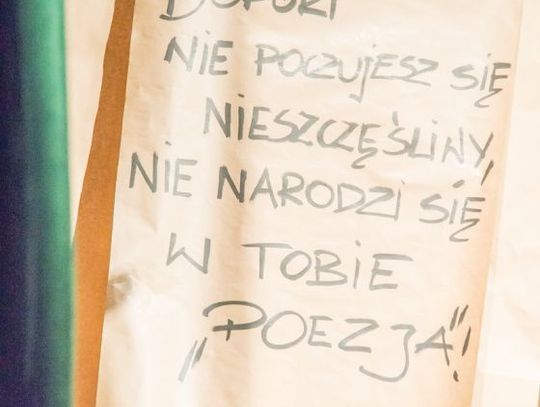 DOPÓKI
NIE POCZUJESZ SIĘ
NIESZCZĘŚLINY,
NIE NARODZI SIĘ
W TOBIE
„POEZJA”!